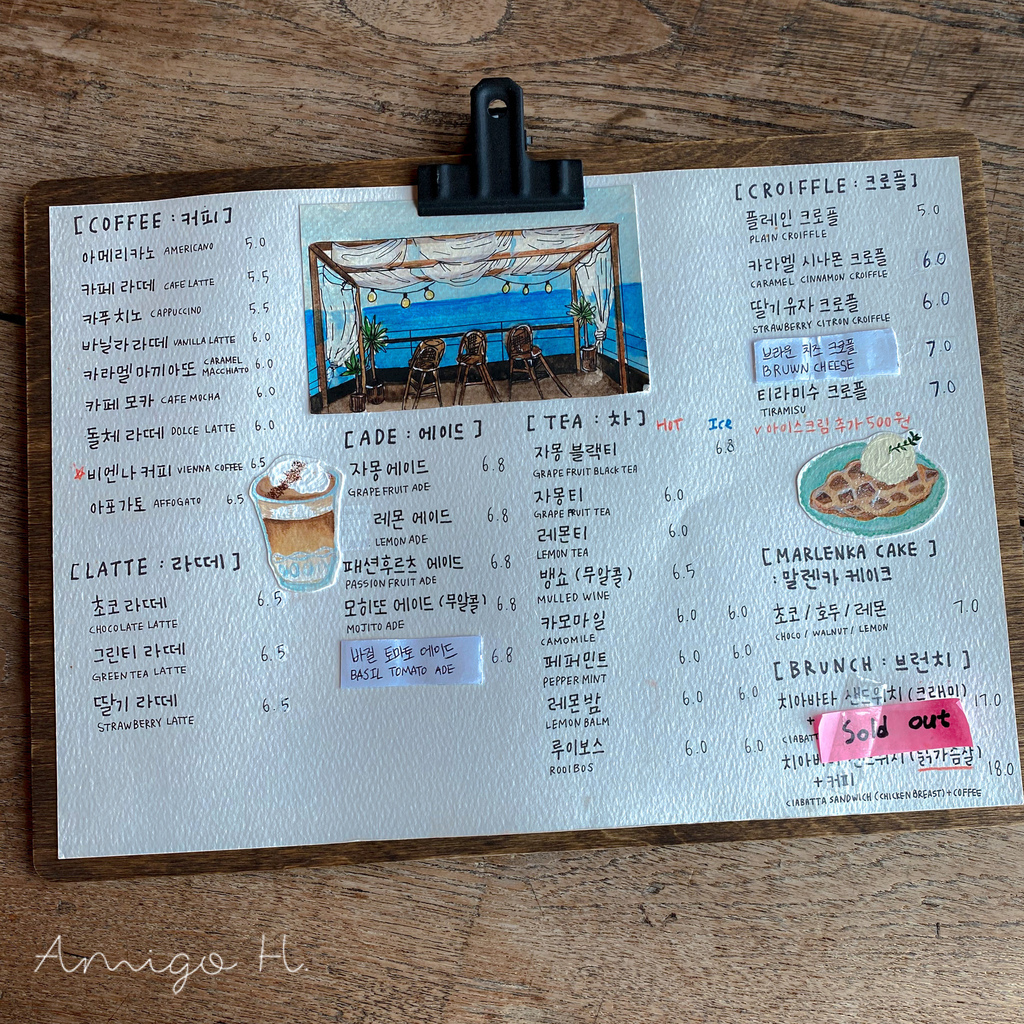 [COFFEE : 커피]
아메리카노 AMERICANO 5.0
카페 라떼 CAFE LATTE 5.5
카푸치노 CAPPUCCINO 5.5
바닐라 라떼 VANILLA LATTE 6.0
카라멜 마끼아또 CARAMEL MACCHIATO 6.0
카페 모카 CAFE MOCHA 6.0
돌체 라떼 DOLCE LATTE 6.0
비엔나 커피 VIENNA COFFEE 6.5
아포가토 AFFOGATO 6.5
[LATTE : 라떼]
초코 라떼 6.5
CHOCOLATE LATTE
그린티 라떼 6.5
GREEN TEA LATTE
딸기 라떼 6.5
STRAWBERRY LATTE
[ADE : 에이드]
자몽 에이드 6.8
GRAPE FRUIT ADE
레몬 에이드 6.8
LEMON ADE
패션후르츠 에이드 6.8
PASSION FRUIT ADE
모히또 에이드 (무알콜) 6.8
MOJITO ADE
바질 토마토 에이드 6.8
BASIL TOMATO ADE
[TEA : 차] HOT ICE
자몽 블랙티 6.8
GRAPE FRUIT BLACK TEA
자몽티 6.0
GRAPE FRUIT TEA
레몬티 6.0
LEMON TEA
뱅쇼 (무알콜) 6.5
MULLED WINE
카모마일 6.0 6.0
CAMOMILE
페퍼민트 6.0 6.0
PEPPER MINT
레몬밤 6.0 6.0
LEMON BALM
루이보스 6.0 6.0
ROOIBOS
[CROIFFLE : 크로플]
플레인 크로플 5.0
PLAIN CROIFFLE
카라멜 시나몬 크로플 6.0
CARAMEL CINNAMON CROIFFLE
딸기유자 크로플 6.0
STRAWBERRY CITRON CROIFFLE
브라운 치즈 크로플 7.0
BRUWN CHEESE
티라미수 크로플 7.0
TIRAMISU
v 아이스크림 추가 500원
[MARLENKA CAKE]
: 말렌카 케이크
초코 / 호두 / 레몬 7.0
CHOCO / WALNUT / LEMON
[BRUNCH : 브런치]
치아바타 샌드위치 (크래미) 17.0
+
CIABATT
Sold out
치아바타 샌드위치 (닭가슴살) 18.0
+ 커피
CIABATTA SANDWICH (CHICKEN BREAST) + COFFEE
Amigo H.